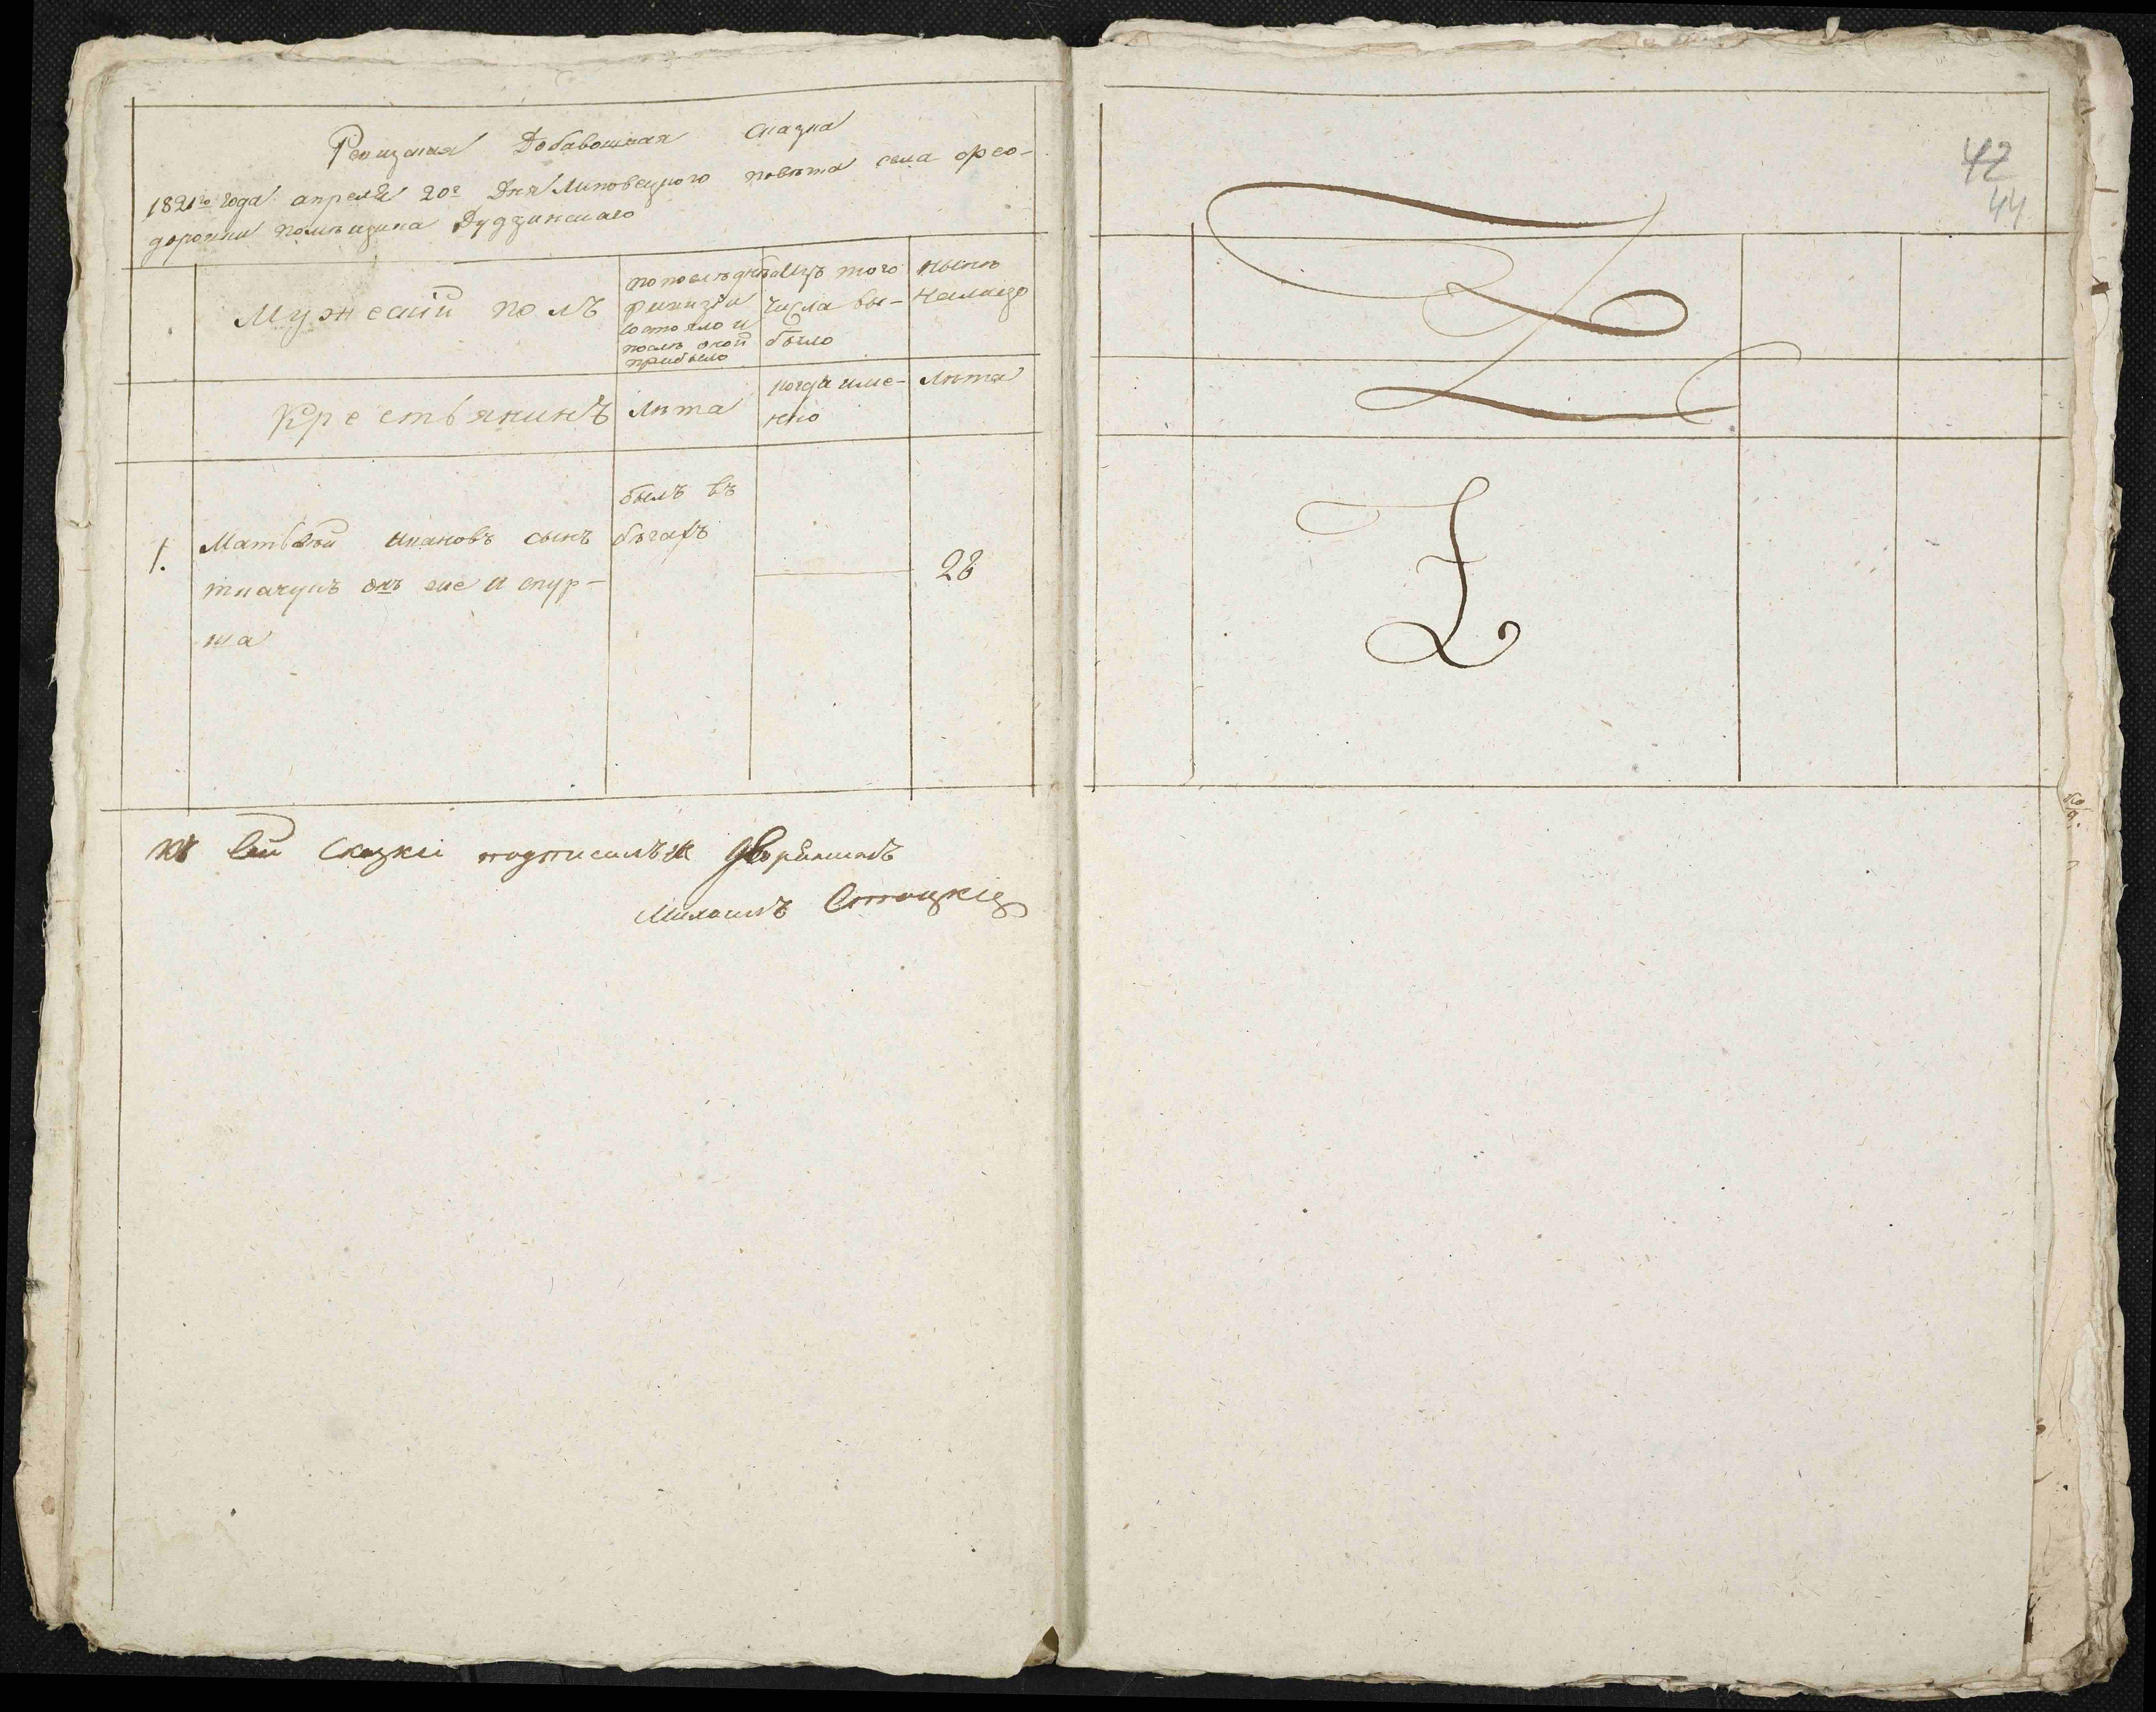 Ревизская Добавошная сказка
1821го года апреля 20г дня Липовецкого повѣта села Фео-
доровки помѣщика Дудзинскаго
Мужеский полъ
по последнѣй
ревизіи
состояло и
послѣ оной
прибыло
Изъ того
числа вы-
было
нынѣ
налицо
Крестьянинъ
лѣта
когда име-
нно
лѣта
1.
Матвѣй Ивановъ сынъ
ткачукъ онъ же и скур-
ша
былъ въ
бѣгахъ
28
къ сей сказки подписалъся дворянинъ
Михаилъ Стоцкій
42
44